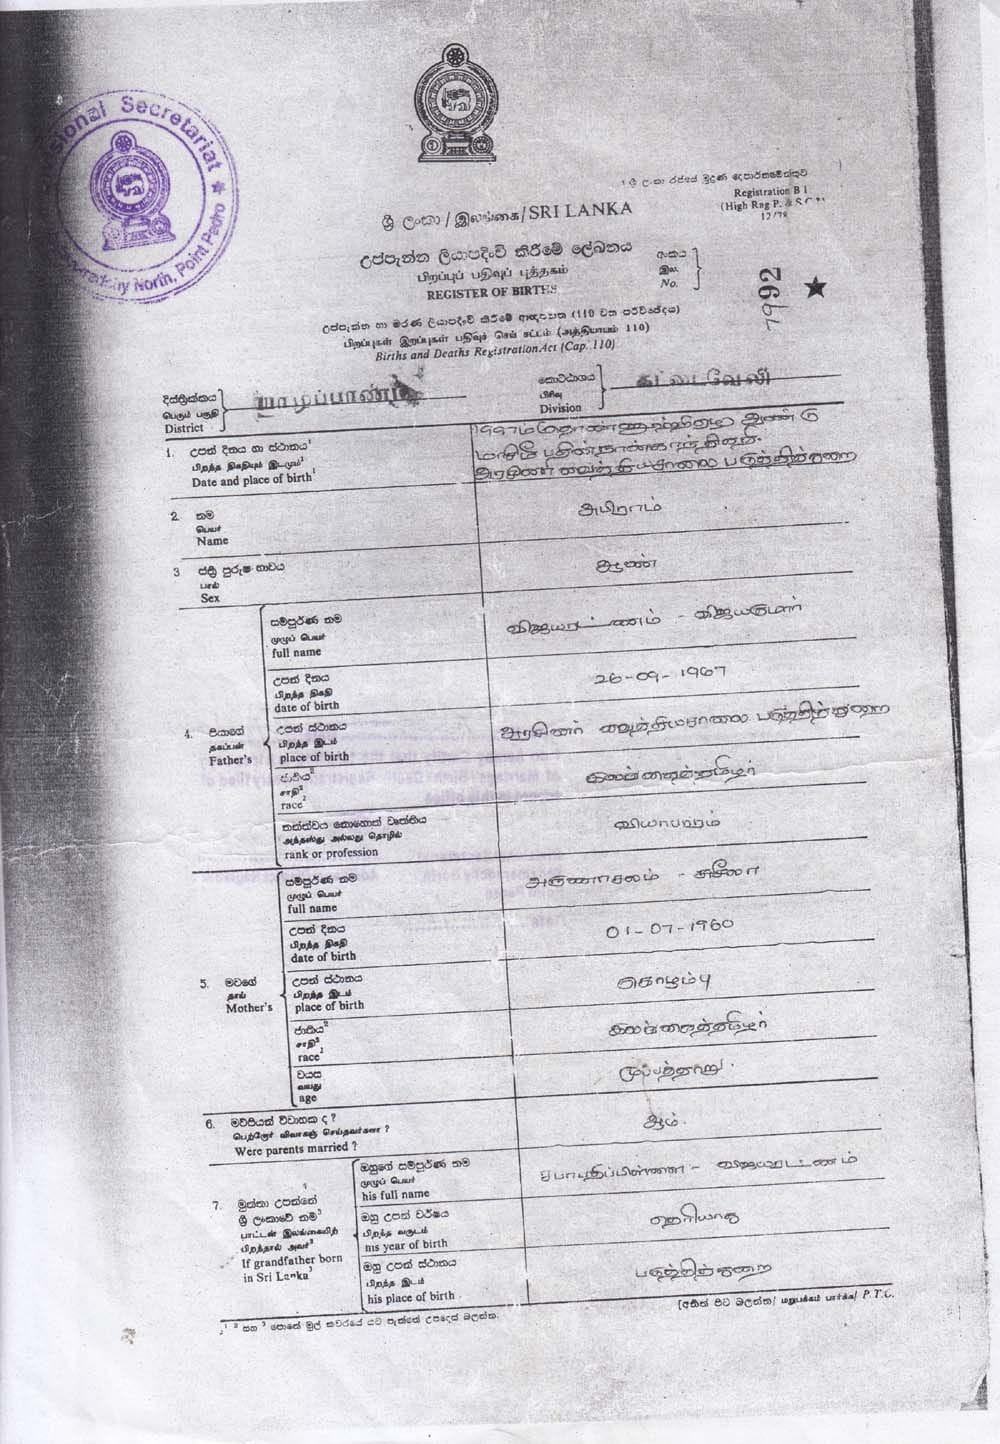 Divisional Secretariat ★
North, Point Pedro
ශ්‍රී ලංකා රජයේ මුද්‍රණ දෙපාර්තමේන්තුව
Registration B 1
(High Rag P. &
12/78
ශ්‍රී ලංකා / இலங்கை / SRI LANKA
උප්පැන්න ලියාපදිංචි කිරීමේ ලේඛනය
பிறப்புப் பதிவுப் புத்தகம்
REGISTER OF BIRTHS
අංකය
இல.
No.
7992 ★
උප්පැන්න හා මරණ ලියාපදිංචි කිරීමේ ආඥාපනත (110 වන පරිච්ඡේදය)
பிறப்புகள் இறப்புகள் பதிவுச் செய் சட்டம் (அத்தியாயம் 110)
Births and Deaths Registration Act (Cap. 110)
දිස්ත්‍රික්කය
பெரும் பகுதி
District
யாழ்ப்பாணம்
කොට්ඨාශය
பிரிவு
Division
கட்டைவேலி
1. උපන් දිනය හා ස්ථානය¹
பிறந்த திகதியும் இடமும்¹
Date and place of birth¹
1997ம் ஆண்டு
மாசி பதினான்காந் திகதி
அரசினர் வைத்தியசாலை பருத்தித்துறை
2. නම
பெயர்
Name
அபிராம்
3 ස්ත්‍රී පුරුෂ භාවය
பால்
Sex
ஆண்
4. පියාගේ
தகப்பன்
Father's
සම්පූර්ණ නම
முழுப் பெயர்
full name
விஜயரட்ணம் - விஜயகுமார்
උපන් දිනය
பிறந்த திகதி
date of birth
26-09-1967
උපන් ස්ථානය
பிறந்த இடம்
place of birth
அரசினர் வைத்தியசாலை பருத்தித்துறை
ජාතිය²
சாதி²
race²
இலங்கைத்தமிழர்
තත්ත්වය නොහොත් වෘත්තිය
அந்தஸ்து அல்லது தொழில்
rank or profession
வியாபாரம்
5. මවගේ
தாய்
Mother's
සම්පූර්ණ නම
முழுப் பெயர்
full name
அருணாசலம் - சுசீலா
උපන් දිනය
பிறந்த திகதி
date of birth
01-07-1960
උපන් ස්ථානය
பிறந்த இடம்
place of birth
கொழும்பு
ජාතිය²
சாதி²
race²
இலங்கைத்தமிழர்
වයස
வயது
age
முப்பத்தாறு.
6. මව්පියන් විවාහක ද ?
பெற்றோர் விவாகஞ் செய்தவர்களா ?
Were parents married ?
ஆம்
7. මුත්තා උපන්නේ
ශ්‍රී ලංකාවේ නම්³
பாட்டன் இலங்கையிற்
பிறந்தால் அவர்³
If grandfather born
in Sri Lanka³
ඔහුගේ සම්පූර්ණ නම
முழுப் பெயர்
his full name
விஜயரட்ணம்
ඔහු උපන් වර්ෂය
பிறந்த வருடம்
his year of birth
தெரியாது
ඔහු උපන් ස්ථානය
பிறந்த இடம்
his place of birth
பருத்தித்துறை
(අනිත් පිට බලන්න/ மறுபக்கம் பார்க்க/ P.T.O.
¹ ² සහ ³ පොතේ මුල් කවරයේ යට පැත්තේ උපදෙස් බලන්න.